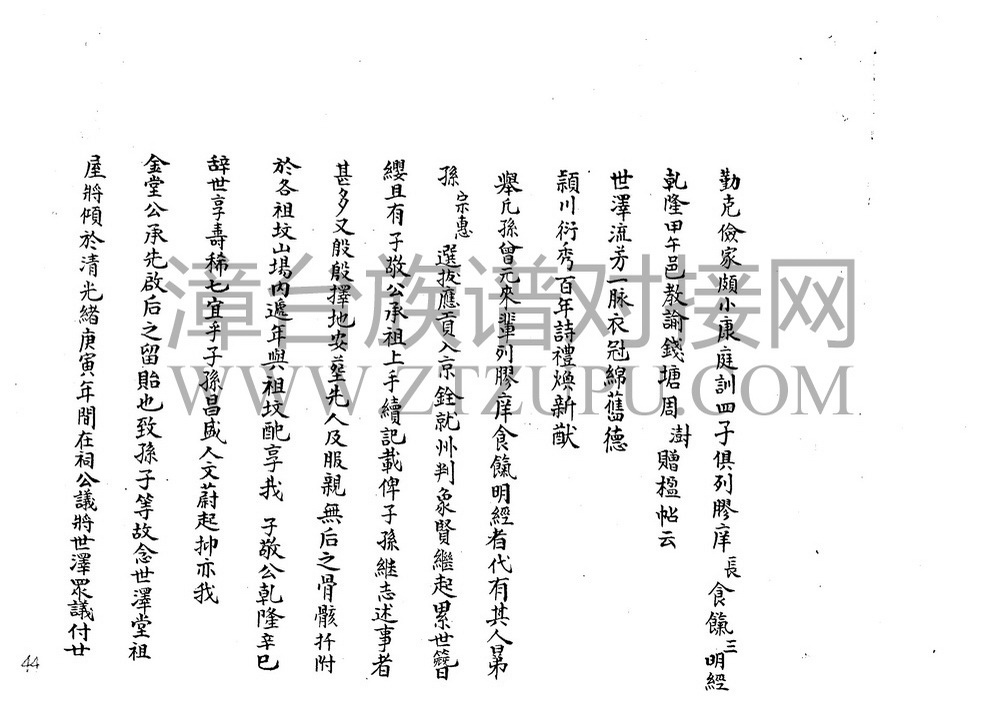 勤克儉家頗小康庭訓四子俱列膠庠長食餼三明經
乾隆甲午邑教諭錢塘周澍贈楹帖云
世澤流芳一脉衣冠綿舊德
頴川衍秀百年詩禮煥新猷
舉凡孫曾元來輩列膠庠食餼明經者代有其人㐮
孫宗惠選拔應貢入京銓就州判象賢繼起累世簪
纓且有子敬公承祖上手續記載俾子孫継志述事者
甚多又殷殷擇地安塟先人及服親無后之骨骸扦附
於各祖坟山場内遞年與祖坟配享我 子敬公乾隆辛巳
辞世享壽稀七宜乎子孫昌盛人文蔚起抑亦我
金堂公承先啟后之留貽也致孫子等故念世澤堂祖
屋將傾於清光緒庚寅年間在祠公議將世澤眾議付廿
44
漳台族谱对接网
WWW.ZTZUPU.COM